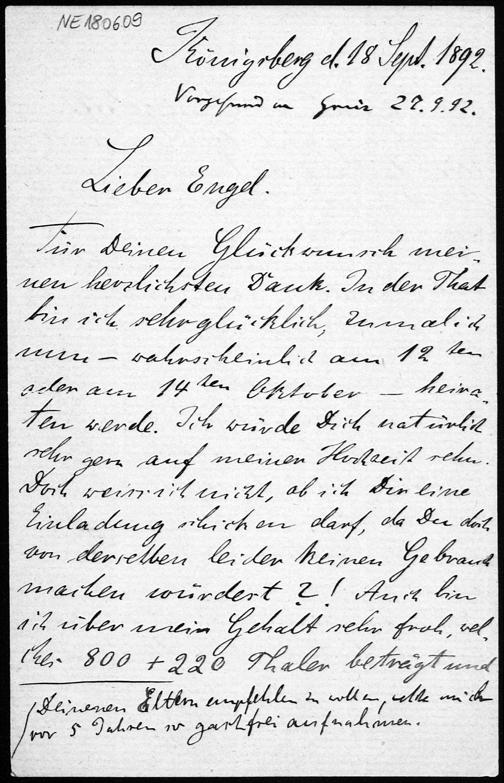 NE180609
Königsberg d. 18 Sept. 1892.
27.9.92.
Lieber Engel.
Für Deinen Glückwunsch mei-
nen herzlichsten Dank. In der That
bin ich sehr glücklich, zumal ich
nun – wahrscheinlich am 12ten
oder am 14ten Oktober – heira-
ten werde. Ich würde Dich natürlich
sehr gern auf meiner Hochzeit sehn.
Doch weiss ich nicht, ob ich Dir eine
Einladung schicken darf, da Du doch
von derselben leider keinen Gebrauch
machen würdest ?! Auch bin
ich über mein Gehalt sehr froh, wel-
ches 800 + 220 Thaler beträgt und
Deinenen Eltern empfehlen zu wollen, welche mich
vor 5 Jahren so gastfrei aufnahmen.